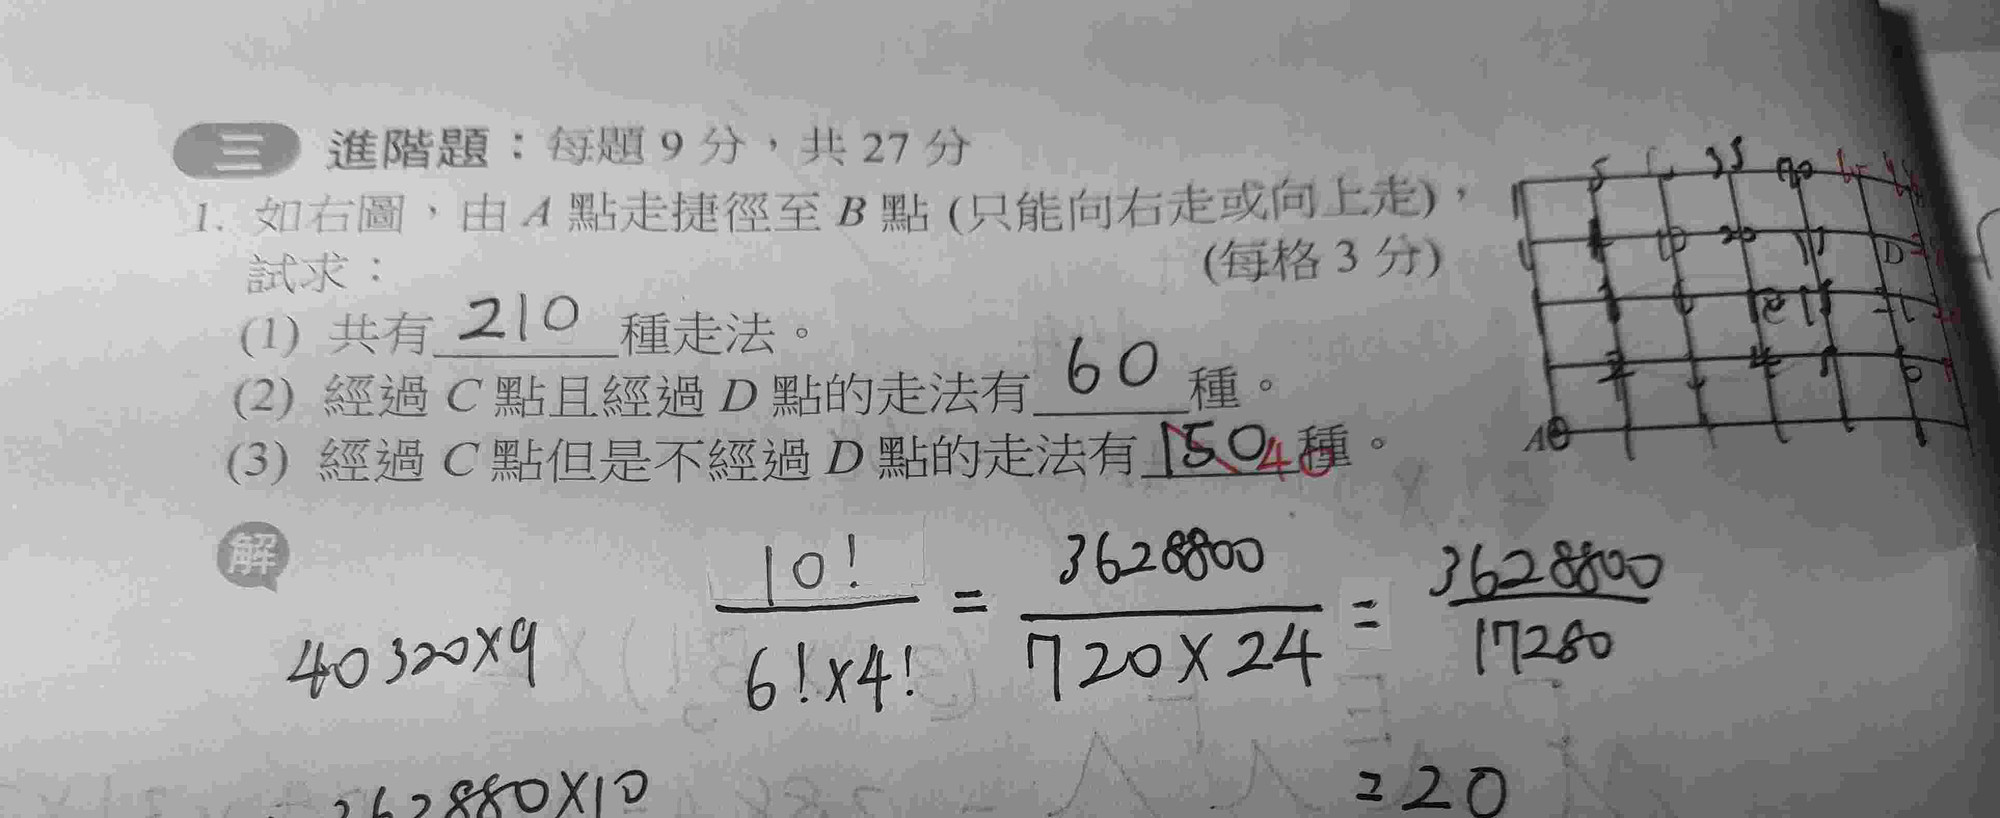 三 進階題：每題 9 分，共 27 分
1. 如右圖，由 A 點走捷徑至 B 點 (只能向右走或向上走)，
試求： (每格 3 分)
(1) 共有 210 種走法。
(2) 經過 C 點且經過 D 點的走法有 60 種。
(3) 經過 C 點但是不經過 D 點的走法有 150 40 種。
D
A
解
10! / 6!×4! = 3628800 / 720×24 = 3628800 / 17280
40320×9
362880×10
=20